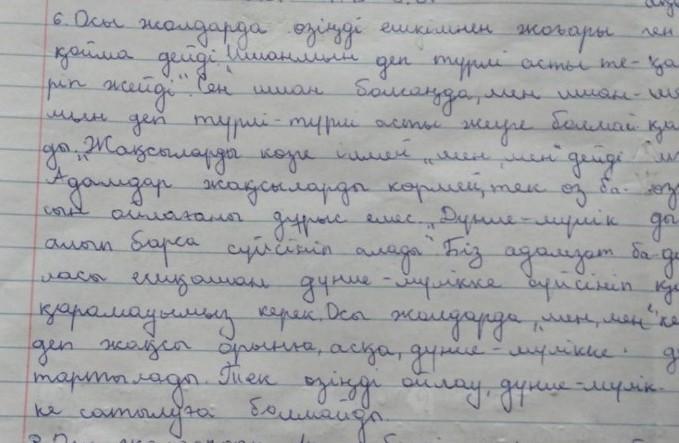 6. Осы жолдарда өзіңді ешкімнен жоғары
қойма дейді. „Иманмын деп түрлі асты те-
ріп жейді". Сен иман болсаңда, мен иман-
мын деп түрлі-түрлі асты жеуге болмай
ды. „Жақсыларды көзге ілмей „мен, мен" дейді
Адамдар жақсыларды көрмей, тек өз ба-
сын ойлағаны дұрыс емес. „Дүние-мүлік
алып барса сүйсініп алады" Біз адамзат ба-
ласы ешқашан дүние-мүлікке сүйсініп
қарамауымыз керек. Осы жолдарда „мен, мен"
деп жақсы орынға, асқа, дүние-мүлікке
тартылады. Тек өзіңді ойлау, дүние-мүлік-
ке сатылуға болмайды.